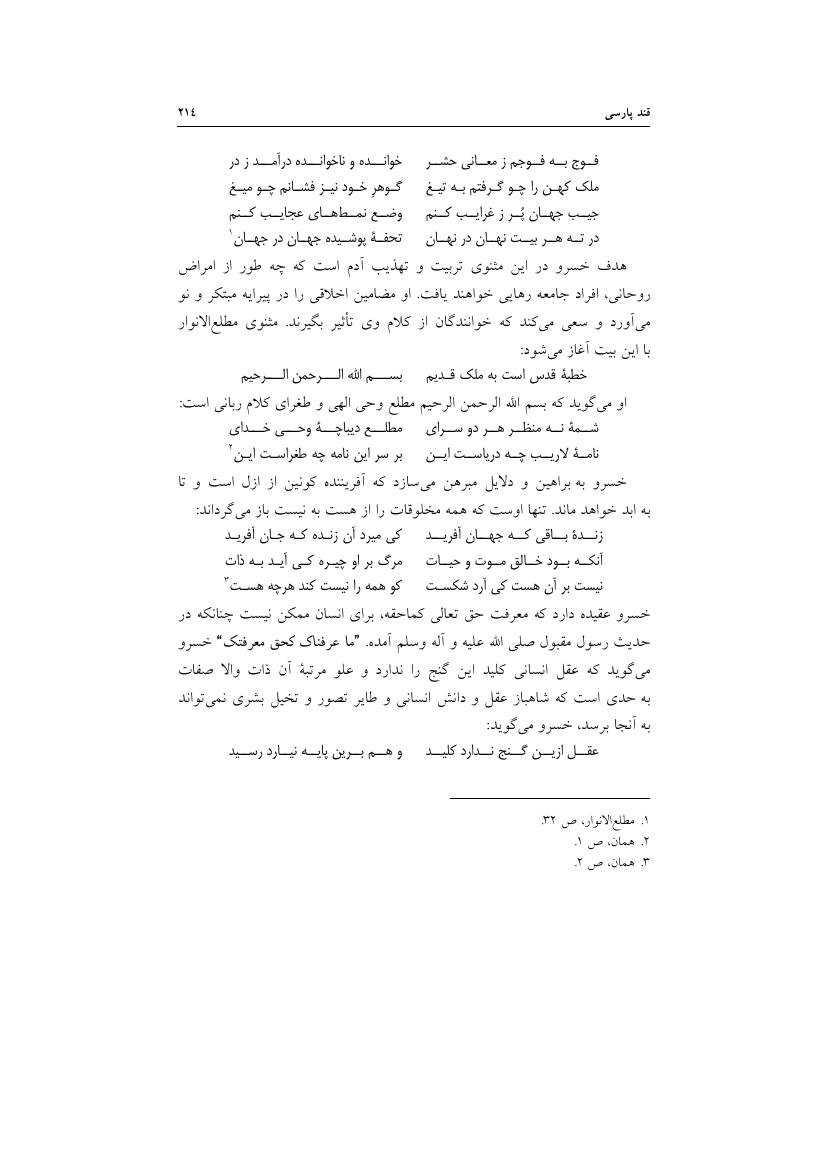 قند پارسی ۲۱٤
فوج به فوجم ز معانی حشر خوانده و ناخوانده درآمد ز در
ملک کهن را چو گرفتم به تیغ گوهرِ خود نیز فشانم چو میغ
جیب جهان پُر ز غرایب کنم وضع نمط‌های عجایب کنم
در ته هر بیت نهان در نهان تحفهٔ پوشیده جهان در جهان۱
هدف خسرو در این مثنوی تربیت و تهذیب آدم است که چه طور از امراض
روحانی، افراد جامعه رهایی خواهند یافت. او مضامین اخلاقی را در پیرایه مبتکر و نو
می‌آورد و سعی می‌کند که خوانندگان از کلام وی تأثیر بگیرند. مثنوی مطلع‌الانوار
با این بیت آغاز می‌شود:
خطبهٔ قدس است به ملک قدیم بسم الله الرحمن الرحیم
او می‌گوید که بسم الله الرحمن الرحیم مطلع وحی الهی و طغرای کلام ربانی است:
شمهٔ نه منظر هر دو سرای مطلع دیباچهٔ وحی خدای
نامهٔ لاریب چه دریاست این بر سر این نامه چه طغراست این۲
خسرو به براهین و دلایل مبرهن می‌سازد که آفریننده کونین از ازل است و تا
به ابد خواهد ماند. تنها اوست که همه مخلوقات را از هست به نیست باز می‌گرداند:
زندهٔ باقی که جهان آفرید کی میرد آن زنده که جان آفرید
آنکه بود خالق موت و حیات مرگ بر او چیره کی آید به ذات
نیست بر آن هست کی آرد شکست کو همه را نیست کند هرچه هست۳
خسرو عقیده دارد که معرفت حق تعالی کماحقه، برای انسان ممکن نیست چنانکه در
حدیث رسول مقبول صلی الله علیه و آله وسلم آمده. ”ما عرفناک کحق معرفتک“ خسرو
می‌گوید که عقل انسانی کلید این گنج را ندارد و علو مرتبهٔ آن ذات والا صفات
به حدی است که شاهباز عقل و دانش انسانی و طایر تصور و تخیل بشری نمی‌تواند
به آنجا برسد، خسرو می‌گوید:
عقل ازین گنج ندارد کلید و هم برین پایه نیارد رسید
۱. مطلع‌الانوار، ص ۳۲.
۲. همان، ص ۱.
۳. همان، ص ۲.